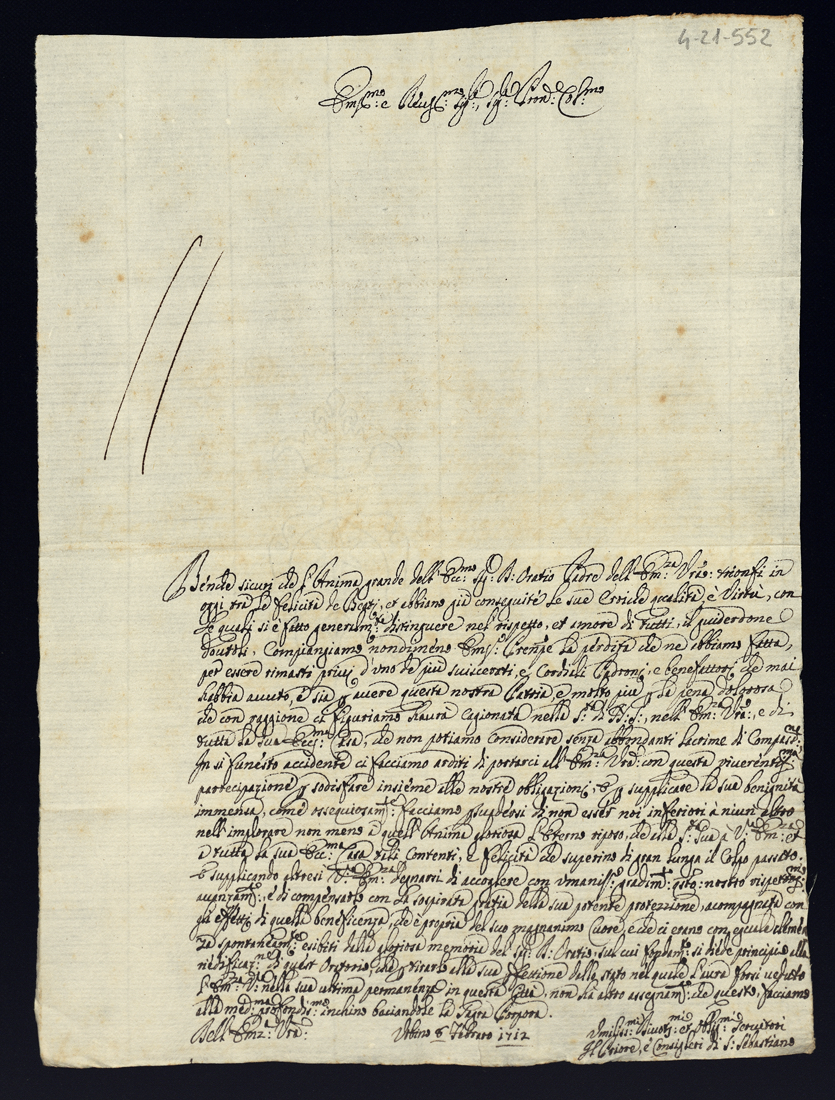 4-21-552
Em.mo e Rev.mo Sig.r, Sig.r Pron. Col.mo
Benche sicuri che l'Anima grande dell' Ecc.mo Sig. D. Oratio Padre dell' Em.za Vra. trionfi in
oggi tra le felicità de Beati, et abbiano più conseguite le sue Eroiche qualità e Virtù, con
le quali si è fatto distinguere nel rispetto, et amore di tutti, il guiderdone
dovutoli, Compiangiamo nondimeno la perdita che ne abbiamo fatta,
per essere rimasti privi d'uno de più sviscerati, e Cordiali Padroni, e benefattori che mai
habbia avuto, è sia p avere questa nostra Patria, e molto più p la pena dolorosa
che con raggione ci figuriamo haverà cagionata nella S.tà di N. S., nell' Em.za Vra., e di
tutta la sua Ecc.ma Casa, che non potiamo considerare senza abbondanti lacrime di
In si funesto accidente ci facciamo arditi di portarci all' Em.za Vra. con questa
partecipazione p sodisfare insieme alle nostre obligazioni, e p supplicare la sua benignità
immensa, come facciamo di non esser noi inferiori à niun altro
nell'implorare non meno à quell'Anima gloriosa l'Eterno riposo, che alla S.tà Sua à V.ra Em.za et
à tutta la sua Ecc.ma Casa Contenti, e felicità che superino di gran lunga il Colpo passato.
E supplicando altresi V.ra Em.za degnarsi di accogliere con umaniss. nostro
, e di compensarlo con la sospirata gratia della sua potente protezzione, acompagnata con
gli effetti di quella beneficenza, che è propria del suo magnanimo Cuore, e che ci erano con eguale
esibiti dalla gloriosa memoria del Sig. D. Oratio, sul cui si diede principio alla
di quest'Oratorio, che p tirarlo alla sua dello stato nel quale l'avrà forsi veduto
l'Em.za V. nella sua ultima permanenza in questa Città, non hà altro che questo, facciamo
alla med.ma profondis.mo inchino baciandole la Sagra Porpora.
Dell' Em.za Vra.
Urbino 8 Febraro 1712
Umiliss.mi Devot.mi et Obl.mi Servitori
Il Priore, e Consiglieri di S. Sebastiano